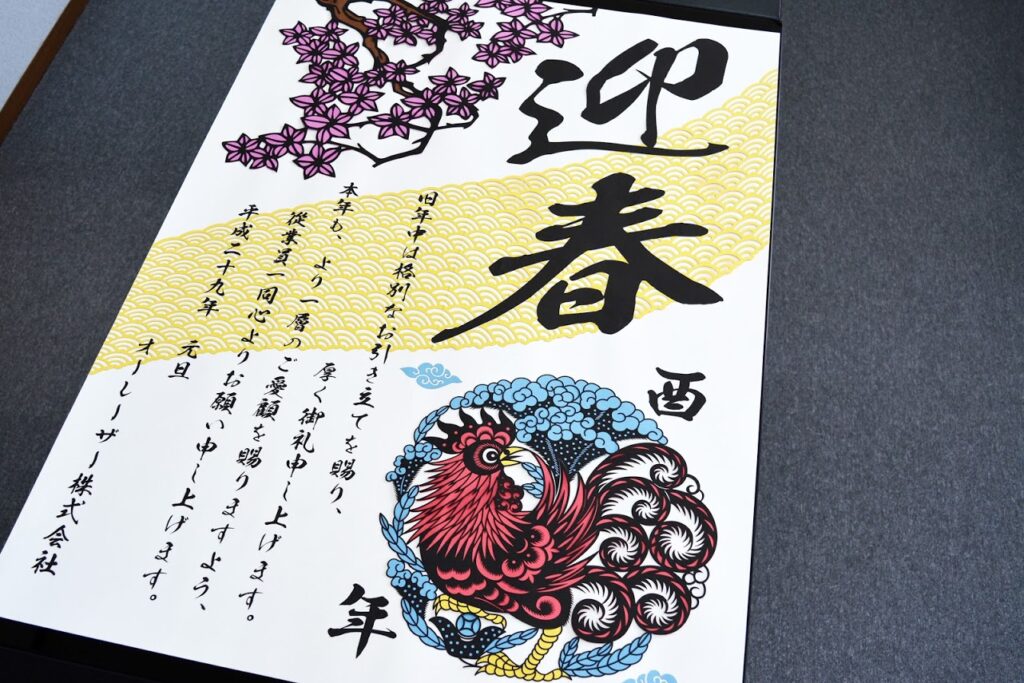 迎春
酉
年
旧年中は格別なお引き立てを賜り、
厚く御礼申し上げます。
本年も、より一層のご愛顧を賜りますよう、
従業員一同心よりお願い申し上げます。
平成二十九年 元旦
オーレーザー株式会社